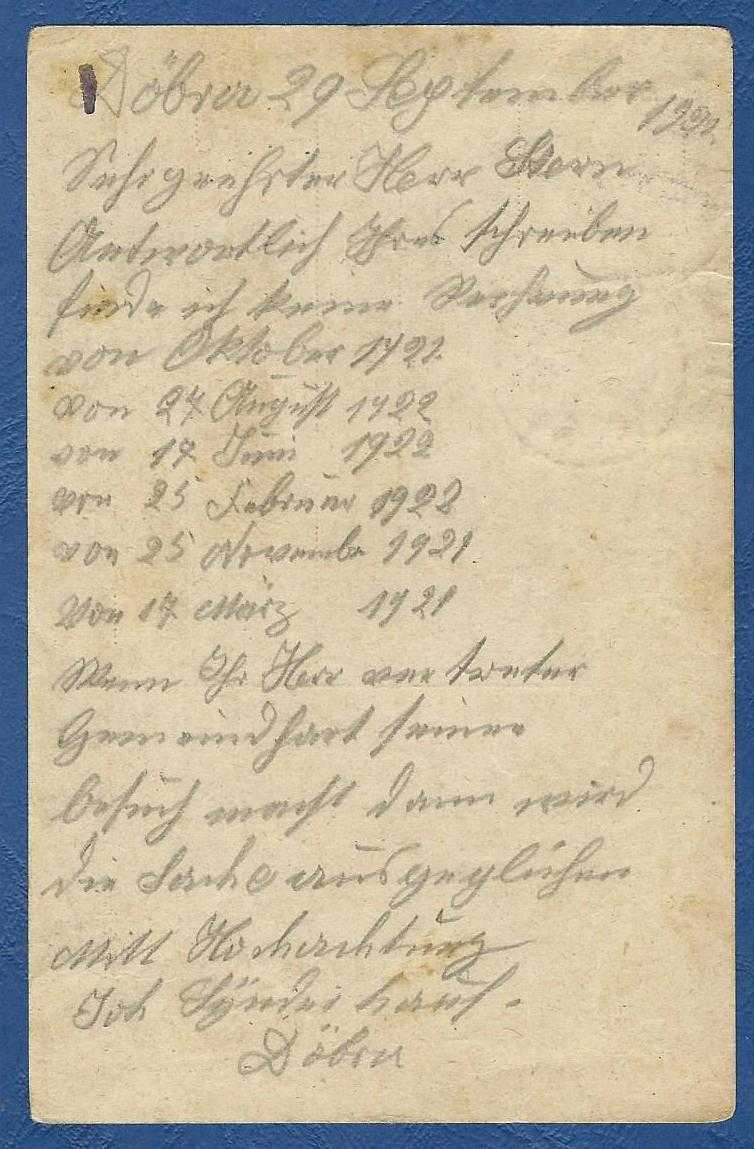 Döbra 29 September
Sehr geehrter Herr Stern
Antwortlich Ihres schreiben
finde ich keine Rechnung
von Oktober 1921
von 27 August 1922
von 17 Juni 1922
von 25 Februar 1922
von 25 Novembe 1921
Von 17 März 1921
Wenn Ihr Herr vertreter
seinen
besuch macht dann wird
die Sache ausgeglichen
Mitt Hochachtung
Joh
Döbra